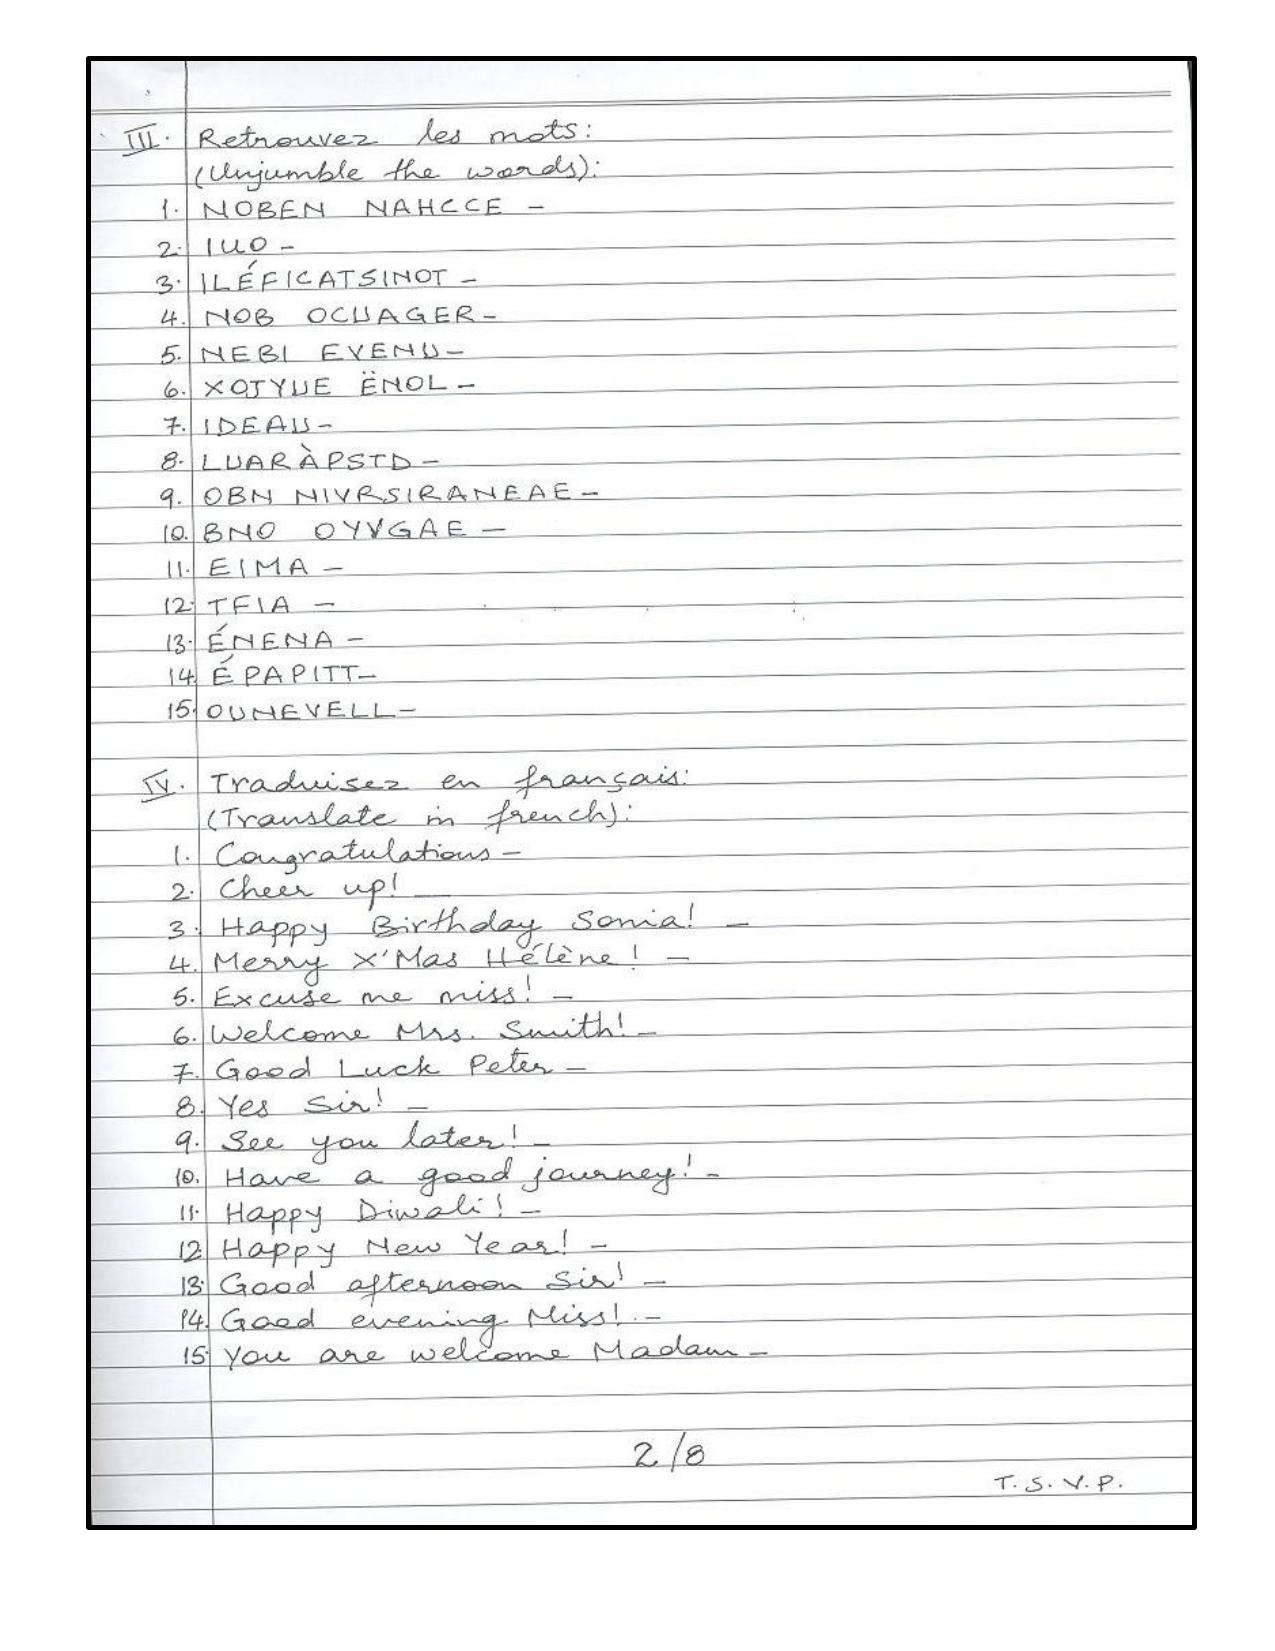 III. Retrouvez les mots:
(Unjumble the words):
1. NOBEN NAHCCE -
2. IUO -
3. ILÉFICATSINOT -
4. NOB OCUAGER -
5. NEBI EVENU -
6. XOJYUE ËNOL -
7. IDEAU -
8. LUARÀPSTD -
9. OBN NIVRSIRANEAE -
10. BNO OYVGAE -
11. EIMA -
12. TFIA -
13. ÉNENA -
14. ÉPAPITT -
15. OUNEVELL -
IV. Traduisez en français:
(Translate in french):
1. Congratulations -
2. Cheer up! _
3. Happy Birthday Sonia! -
4. Merry X'Mas Hélène! -
5. Excuse me miss! -
6. Welcome Mrs. Smith! -
7. Good Luck Peter -
8. Yes Sir! -
9. See you later! -
10. Have a good journey! -
11. Happy Diwali! -
12. Happy New Year! -
13. Good afternoon Sir! -
14. Good evening Miss! -
15. You are welcome Madam -
2/8
T.S.V.P.